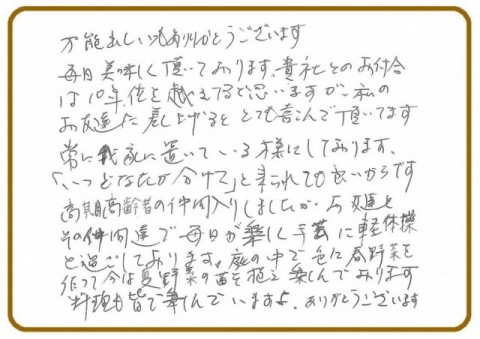 万能出しいつもありがとうございます
毎日美味しく頂いております、貴社とのお付合
は10年位を越えてると思いますが、私の
お友達に差し上げると とても喜んで頂いてます
常に我家に置いている様にしております、
「いつどなたが分けて」と来られても良いからです
高期高齢者の仲間入りしましたが お友達と
その仲間達で毎日が楽しく手芸に軽体操
と過ごしております。庭の中で色々春野菜を
作って今は夏野菜の苗を植え楽しんでおります
料理も皆で楽しんでいますよ、ありがとうございます